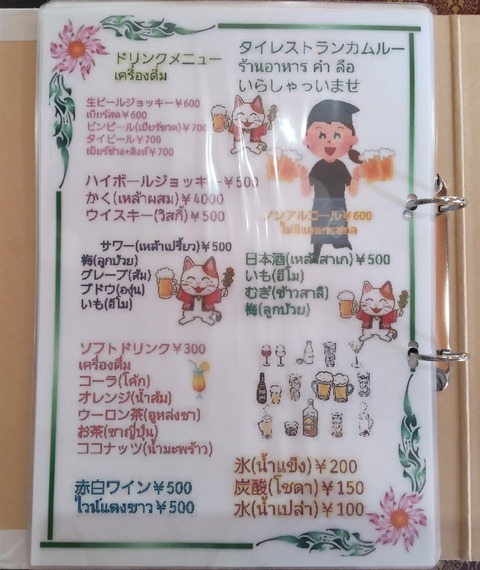 ドリンクメニュー
เครื่องดื่ม
タイレストランカムルー
ร้านอาหาร คำ ลือ
いらしゃっいませ
生ビールジョッキー¥600
เบียร์สด¥600
ビンビール(เบียร์ขวด)¥700
タイビール¥700
เบียร์ช้าง+สิงห์¥700
ハイボールジョッキー¥500
かく(เหล้าผสม)¥4000
ウイスキー(วิสกี้)¥500
ノンアルコール¥600
ไม่มีแอลกอฮอล
サワー(เหล้าเปรี้ยว)¥500
梅(ลูกบ๋วย)
グレープ(ส้ม)
ブドウ(องุ่น)
いも(อีโม)
日本酒(เหล้าสาเก)¥500
いも(อีโม)
むぎ(ข้าวสาลี)
梅(ลูกบ๋วย)
ソフトドリンク¥300
เครื่องดื่ม
コーラ(โค้ก)
オレンジ(น้ำส้ม)
ウーロン茶(อูหล่งชา)
お茶(ชาญี่ปุ่น)
ココナッツ(น้ำมะพร้าว)
赤白ワイン¥500
ไวน์แดงขาว¥500
氷(น้ำแข็ง)¥200
炭酸(โซดา)¥150
水(น้ำเปล่า)¥100